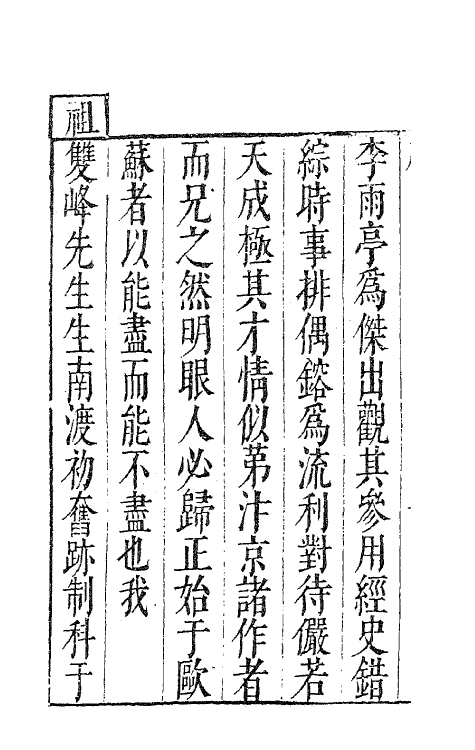 李雨亭爲傑出觀其參用經史錯
綜時事排偶鎔爲流利對待儼若
天成極其才情似苐汴京諸作者
而兄之然明眼人必歸正始于歐
蘇者以能盡而能不盡也我
祖
雙峰先生生南渡初奮跡制科于